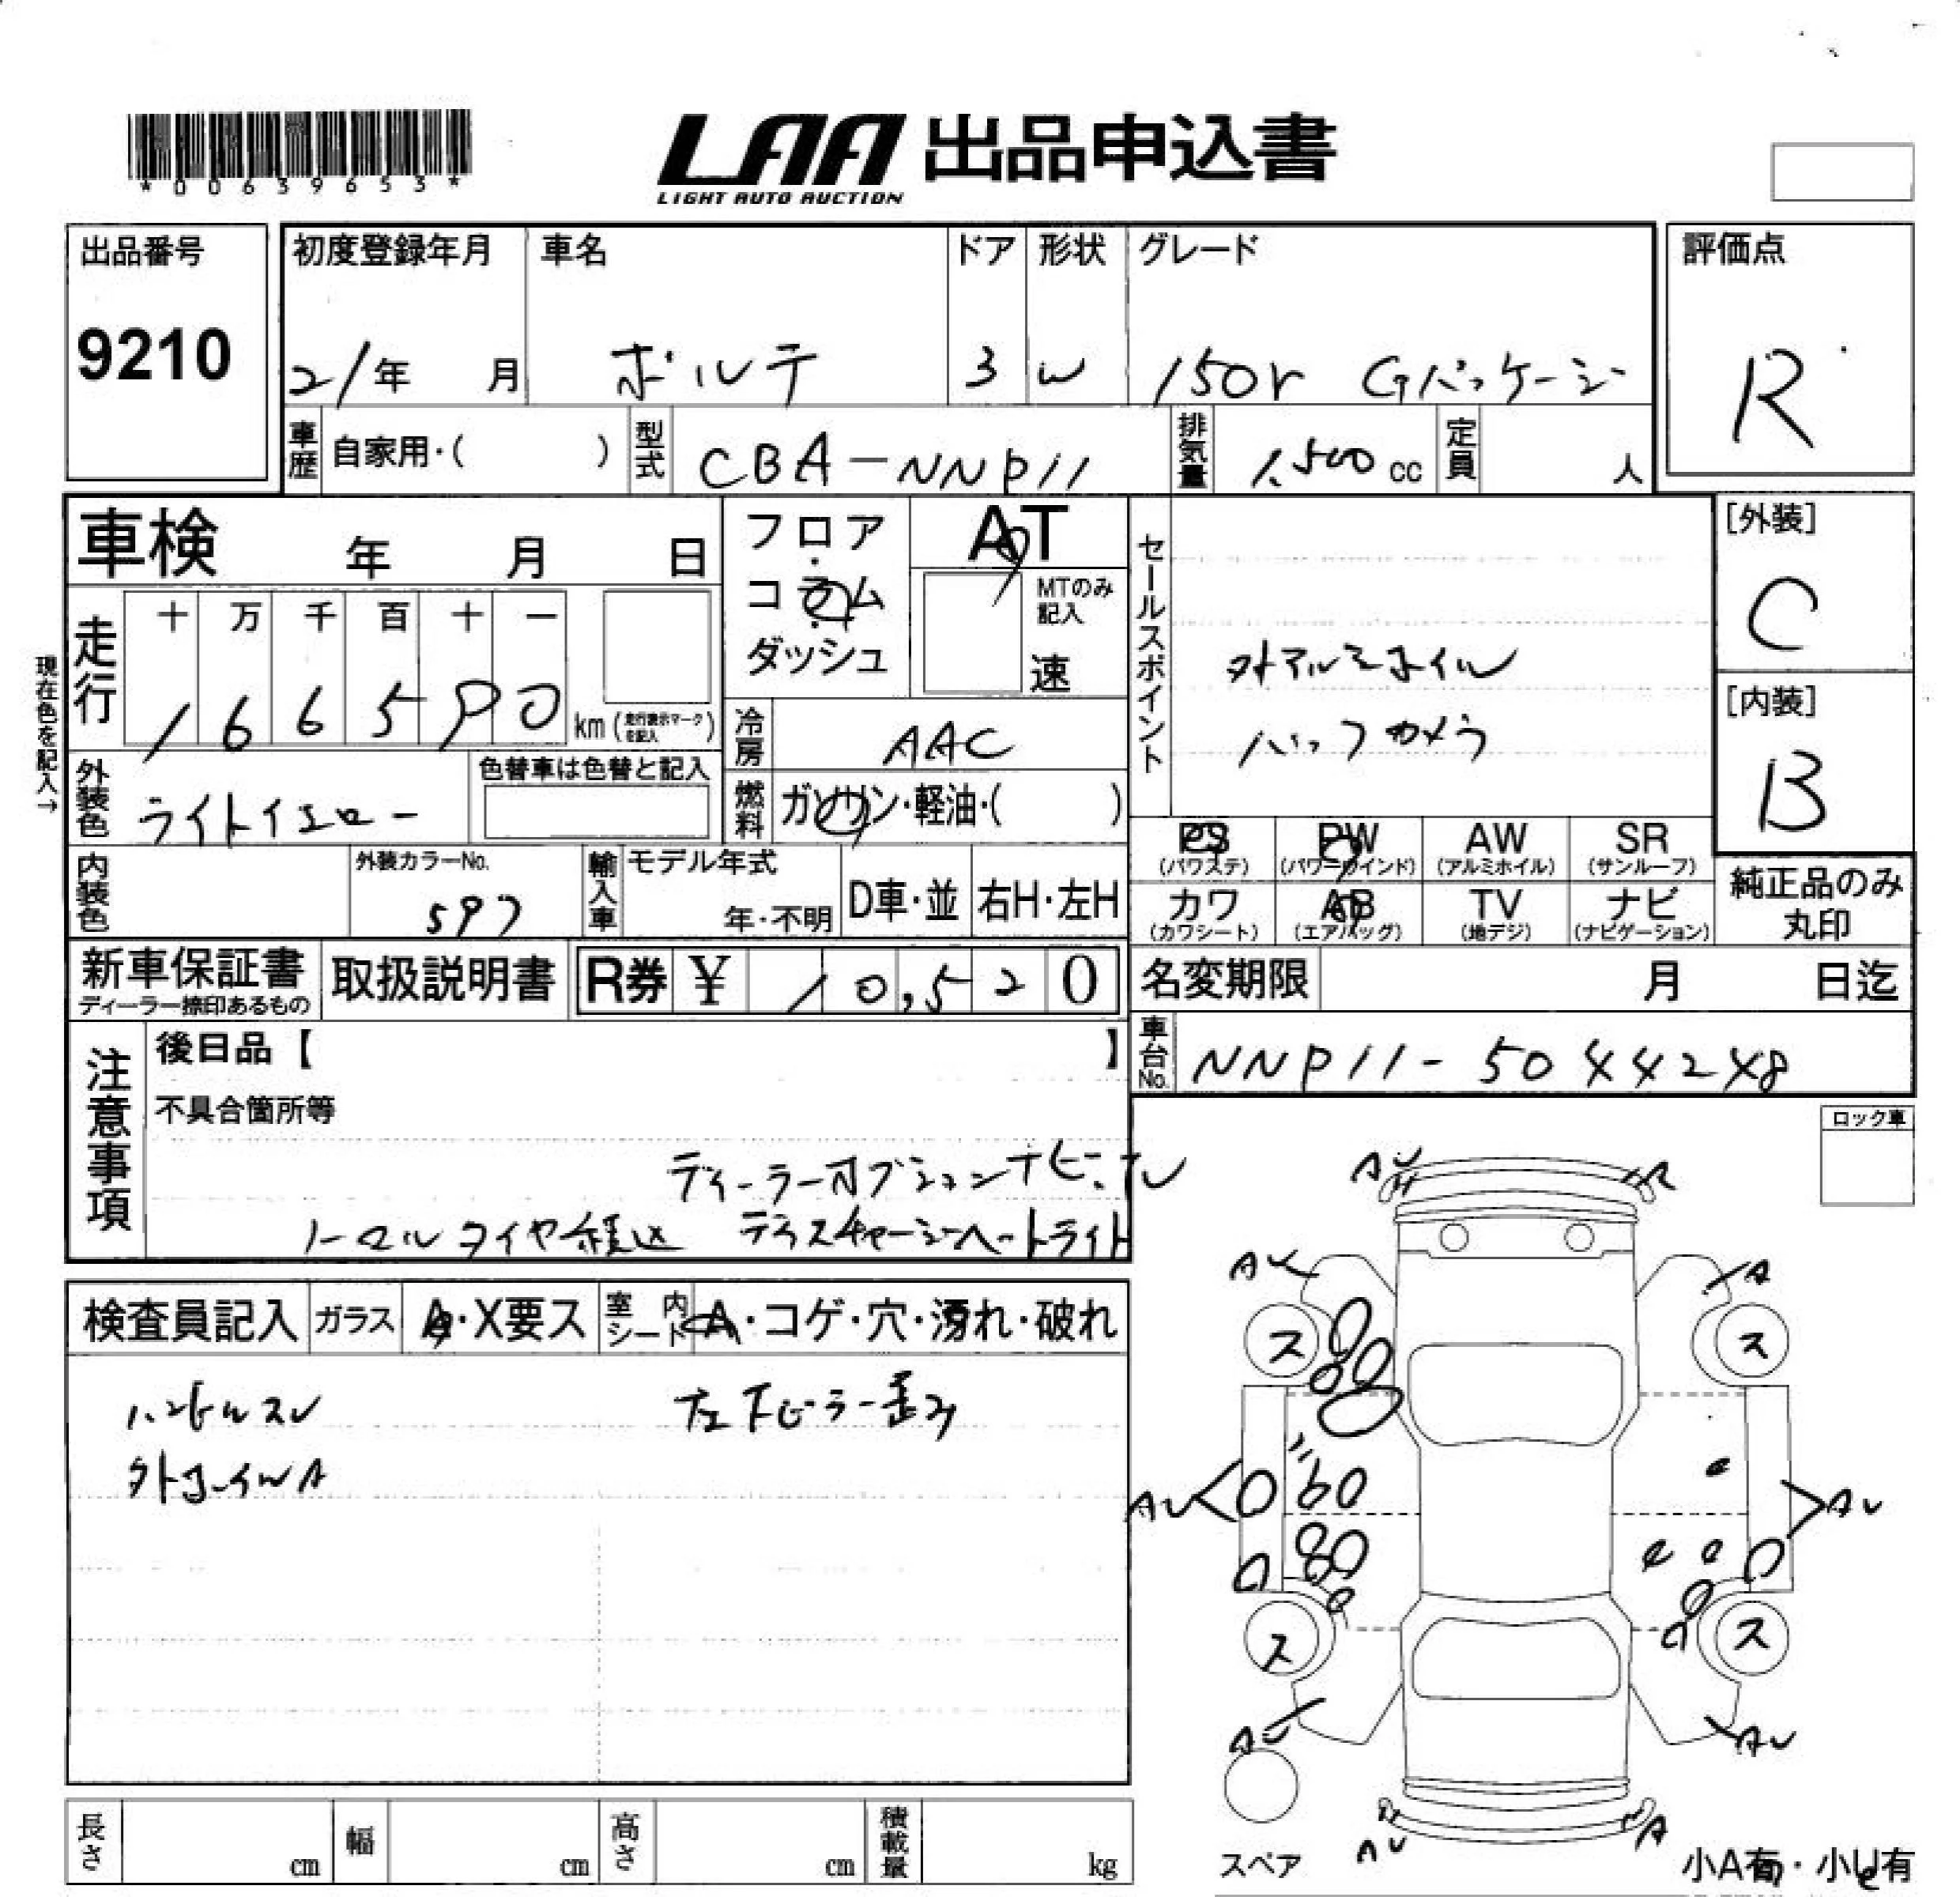 *00639653*
LAA 出品申込書
LIGHT AUTO AUCTION
出品番号
9210
初度登録年月 車名 ドア 形状 グレード
21年 月 ポルテ 3 W 150r Gパッケージ
評価点
R
車歴 自家用・( ) 型式 CBA-NNP11 排気量 1,500cc 定員 人
車検 年 月 日
フロア・コラム・ダッシュ
AT
MTのみ記入
速
セールスポイント
外アルミホイル
バックカメラ
[外装]
C
[内装]
B
現在色を記入→
走行 十 万 千 百 十 一
166590 km (走行表示マークを記入)
冷房 AAC
外装色 ライトイエロー 色替車は色替と記入
燃料 ガソリン・軽油・( )
PS (パワステ) PW (パワーウインド) AW (アルミホイル) SR (サンルーフ)
カワ (カワシート) AB (エアバッグ) TV (地デジ) ナビ (ナビゲーション)
純正品のみ丸印
内装色 外装カラーNo. 597 輸入車 モデル年式 年・不明 D車・並 右H・左H
新車保証書 ディーラー捺印あるもの 取扱説明書 R券 ¥ 10,520
名変期限 月 日迄
車台No. NNP11-5044248
注意事項
後日品【 】
不具合箇所等
ディーラーオプションナビ、TV
ノーマルタイヤ積込 ディスチャージヘッドライト
ロック車
検査員記入 ガラス A・X要ス 室内シート A・コゲ・穴・汚れ・破れ
ハンドルスレ 左下ピラー歪み
外ホイルA
AU A
AU A
ス ス
AU AU
ス ス
AU AU
AU A
スペア
小A有・小U有
長さ cm 幅 cm 高さ cm 積載量 kg